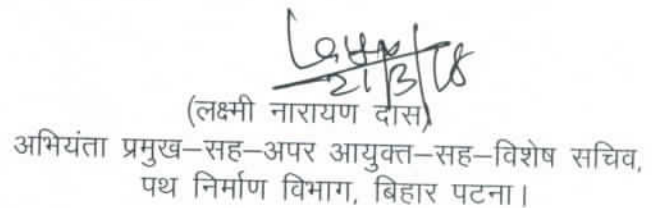 21/3/18
(लक्ष्मी नारायण दास)
अभियंता प्रमुख–सह–अपर आयुक्त–सह–विशेष सचिव,
पथ निर्माण विभाग, बिहार पटना।